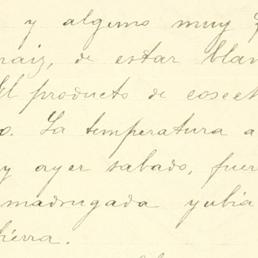 y alguno muy
raiz, de estar blan
El producto de cosech
o. La temperatura a
y ayer sabado, fuer
madrugada y ubia
tierra.